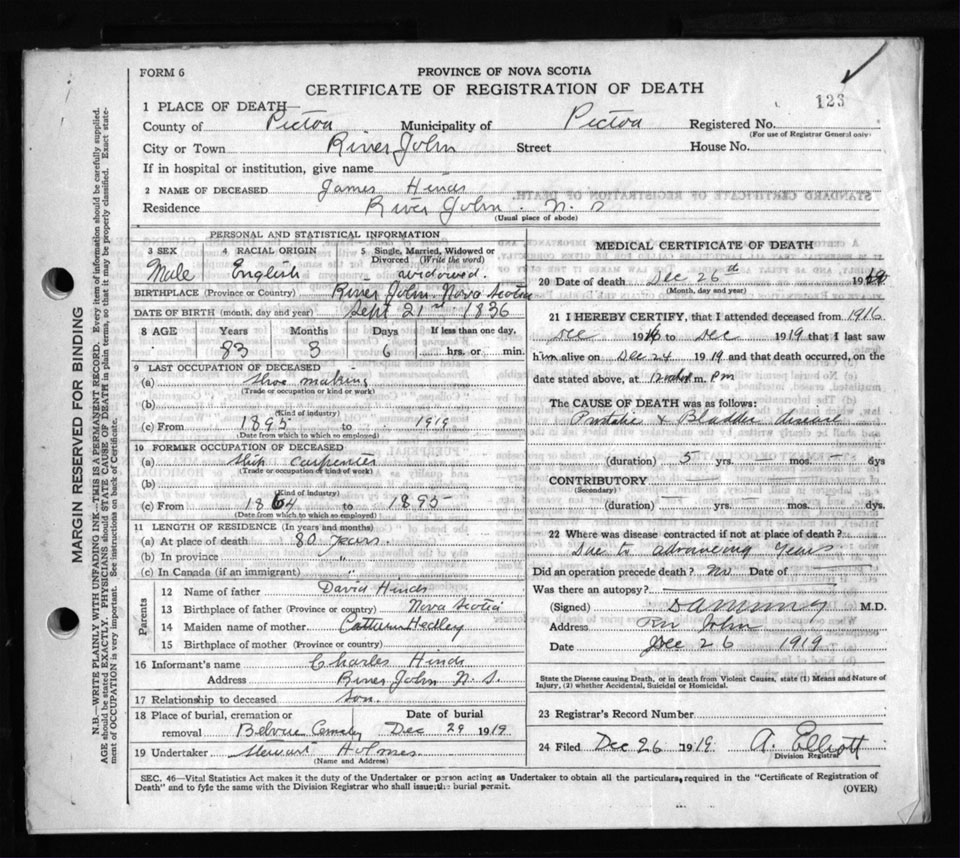 FORM 6
PROVINCE OF NOVA SCOTIA
CERTIFICATE OF REGISTRATION OF DEATH
123
1 PLACE OF DEATH—
County of Pictou Municipality of Pictou Registered No.
(For use of Registrar General only)
City or Town River John Street House No.
If in hospital or institution, give name
2 NAME OF DECEASED James Hinds
Residence River John. N. S
(Usual place of abode)
MARGIN RESERVED FOR BINDING
N.B.—WRITE PLAINLY WITH UNFADING INK—THIS IS A PERMANENT RECORD. Every item of information should be carefully supplied.
AGE should be stated EXACTLY. PHYSICIANS should STATE CAUSE OF DEATH in plain terms, so that it may be properly classified. Exact state-
ment of OCCUPATION is very important. See instructions on back of Certificate.
PERSONAL AND STATISTICAL INFORMATION
3 SEX 4 RACIAL ORIGIN 5 Single, Married, Widowed or Divorced (Write the word)
Male English widowed.
BIRTHPLACE (Province or Country) River John Nova Scotia
DATE OF BIRTH (month, day and year) Sept 21st 1836
8 AGE Years Months Days If less than one day,
83 3 6 hrs. or min.
9 LAST OCCUPATION OF DECEASED
(a) Shoe making
(Trade or occupation or kind of work)
(b)
(Kind of industry)
(c) From 1895 to 1919
(Date from which to which so employed)
10 FORMER OCCUPATION OF DECEASED
(a) Ship carpenter
(Trade or occupation or kind of work)
(b)
(Kind of industry)
(c) From 1864 to 1895
(Date from which to which so employed)
11 LENGTH OF RESIDENCE (In years and months)
(a) At place of death 80 years.
(b) In province "
(c) In Canada (if an immigrant) "
Parents
12 Name of father David Hinds
13 Birthplace of father (Province or country) Nova Scotia
14 Maiden name of mother Hedley
15 Birthplace of mother (Province or country)
16 Informant's name Charles Hinds
Address River John N. S.
17 Relationship to deceased son.
18 Place of burial, cremation or Date of burial
removal Dec 29 1919
19 Undertaker Stewart Holmes
(Name and Address)
MEDICAL CERTIFICATE OF DEATH
20 Date of death Dec 26th 19
(Month, day and year)
21 I HEREBY CERTIFY, that I attended deceased from 1916
Dec 1916 to Dec 1919 that I last saw
him alive on Dec 24 1919 and that death occurred, on the
date stated above, at m. Pm
The CAUSE OF DEATH was as follows:
& Bladder disease
(duration) 5 yrs. — mos. — dys
CONTRIBUTORY
(Secondary)
(duration) yrs. mos. dys.
22 Where was disease contracted if not at place of death?
Due to advancing years
Did an operation precede death? No Date of
Was there an autopsy?
(Signed) M.D.
Address Riv John
Date Dec 26 1919
State the Disease causing Death, or in death from Violent Causes, state (1) Means and Nature of
Injury, (2) whether Accidental, Suicidal or Homicidal.
23 Registrar's Record Number
24 Filed Dec 26 1919 A. Elliott
Division Registrar
SEC. 46—Vital Statistics Act makes it the duty of the Undertaker or person acting as Undertaker to obtain all the particulars, required in the "Certificate of Registration of
Death" and to fyle the same with the Division Registrar who shall issue the burial permit. (OVER)